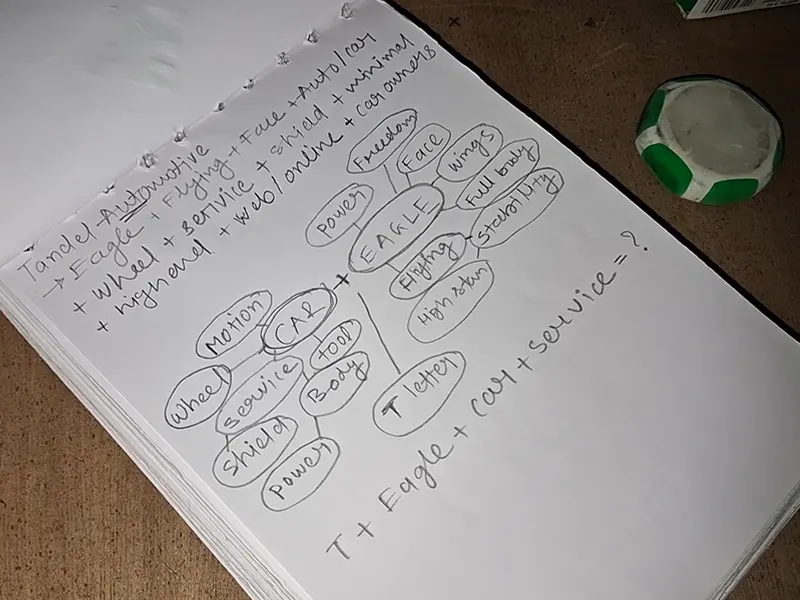 Tandel Automotive
→ Eagle + Flying + Face + Auto/car
+ wheel + serivice + shield + minimal
+ highend + web/online + car owners
Freedom
Face
Wings
Power
EAGLE
Full body
Stability
Flying
High stan
+
Motion
CAR
Wheel
Service
tool
Body
Shield
Power
T letter
T + Eagle + car + service = ?